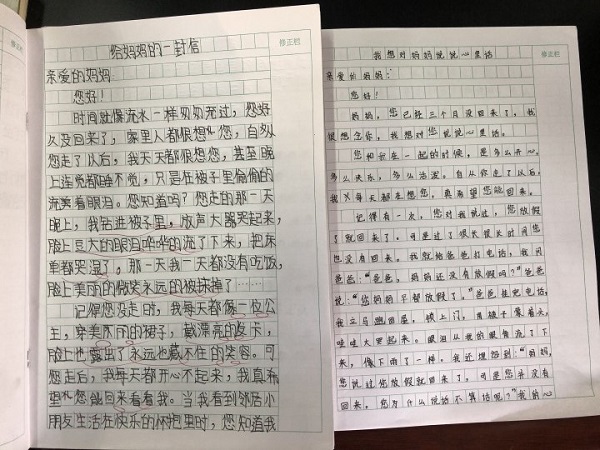 给妈妈的一封信
修正栏
亲爱的妈妈
您好！
时间就像流水一样匆匆流过，您好
久没回来了，家里人都很想您，自从
您走了以后，我天天都很想您，甚至晚
上连觉都睡不觉，只是在被子里偷偷的
流着眼泪。您知道吗？您走的那一天
晚上，我钻进被子里，放声大器哭起来，
脸上豆大的眼泪哗哗的流了下来，把床
单都哭湿了。那一天我一天都没有吃饭，
脸上美丽的微笑永远的被抹掉了……
记得您没走时，我每天都像一位公
主，穿美丽的裙子，戴漂亮的发卡，
脸上也露出了永远也藏不住的笑容。可
您走后，我每天都开心不起来，我真希
望您能回来看看我。当我看到邻居小
朋友生活在快乐的怀抱里时，您知道我
我想对妈妈说说心里话
修正栏
亲爱的妈妈：
您好！
妈妈，您已经三个月没回来了，我
很想念您，我想对您说说心里话。
您和我在一起的时候，是多么开心，
多么快乐，多么活泼。自从你走了以后，
我每天都在想您，真希望您能回来。
记得有一次，您对我说过，您放假
了就回来了。可是过了很长很长时间您
也没有回来。我就给爸爸打电话，我问
爸爸：“爸爸，妈妈还没有放假吗？”爸爸
说：“您妈妈不管放假了。”爸爸挂完电话，
我立马跑回屋，锁上门，
哇哇大哭起来。眼泪从我的眼情流了下
来，像下雨了一样。我还埋怨到“妈妈，
您说过您放假就回来了，可是您并没有
回来，您为什么说话不算话呢？”我的心